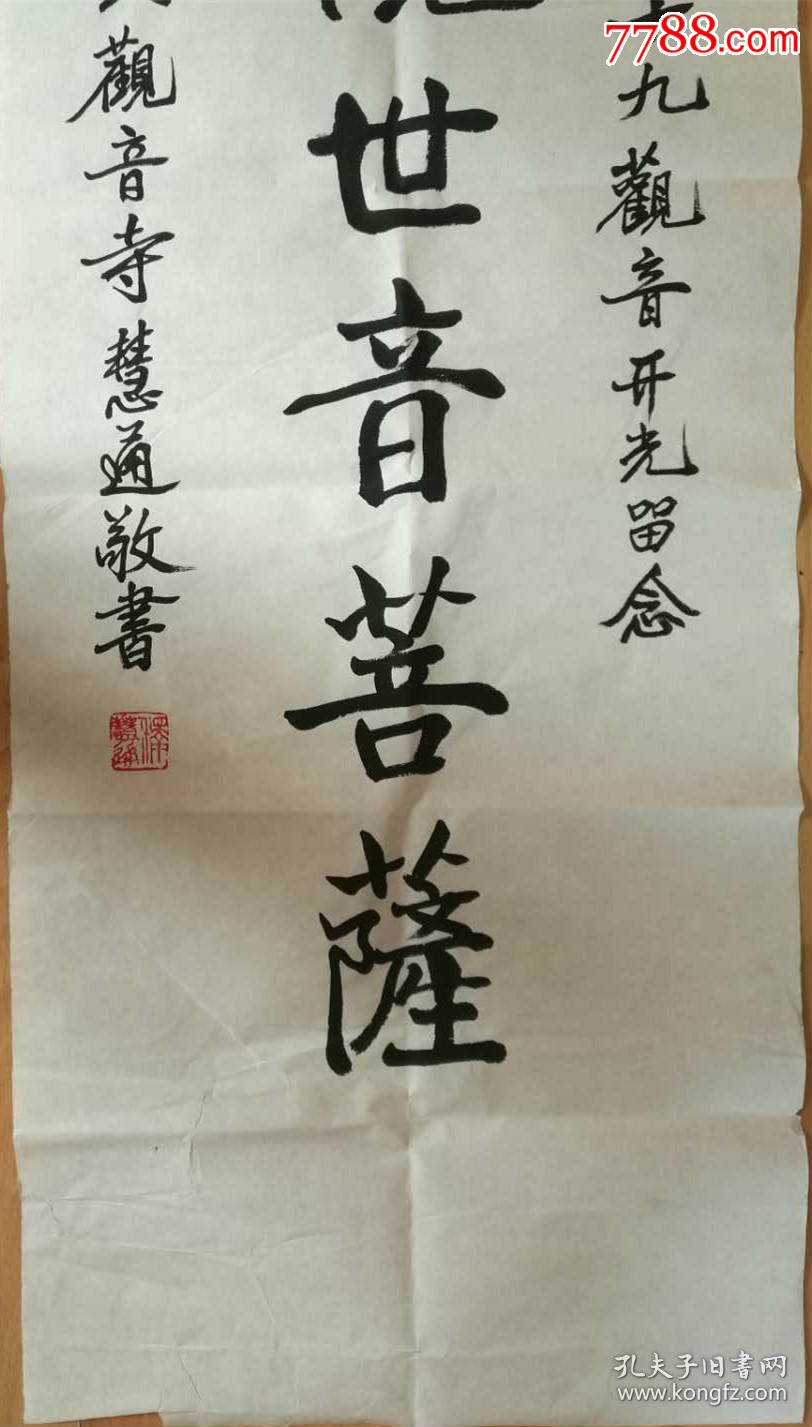 7788.com
九觀音开光留念
世音菩薩
觀音寺慧通敬書
孔夫子旧書网
www.kongfz.com